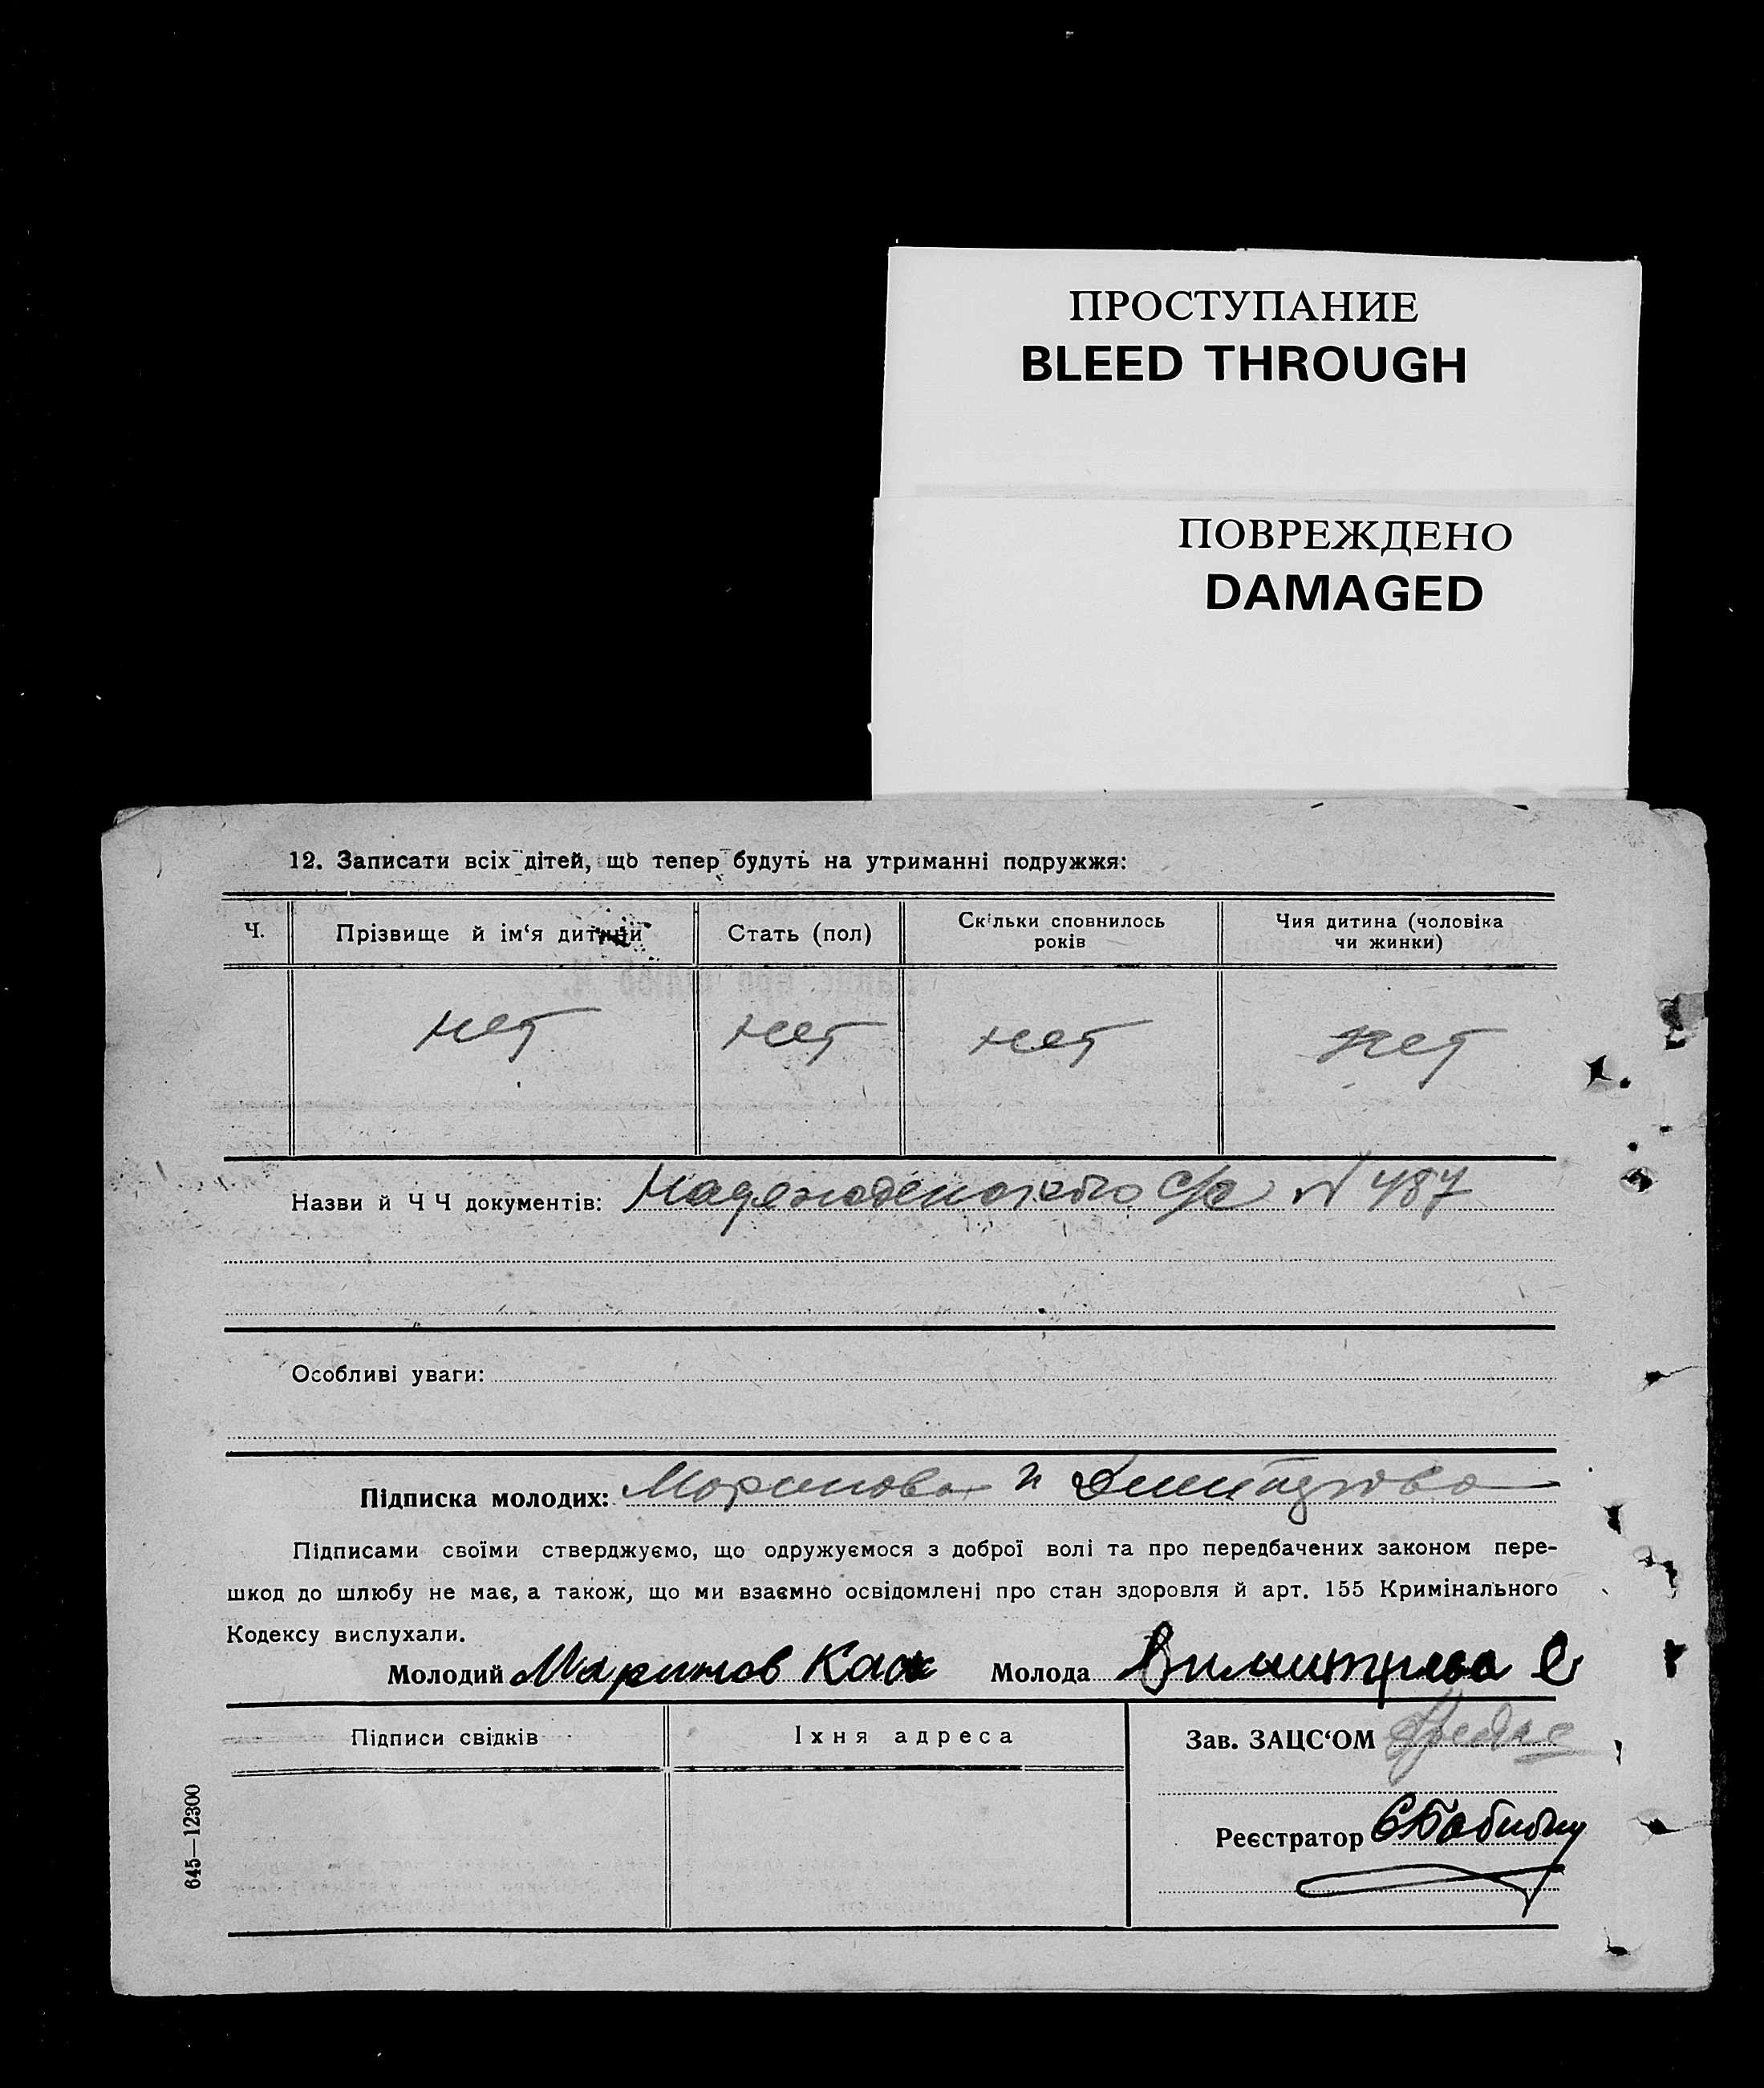 ПРОСТУПАНИЕ
BLEED THROUGH
ПОВРЕЖДЕНО
DAMAGED
12. Записати всіх дітей, що тепер будуть на утриманні подружжя:
Ч. Прізвище й ім‘я дитини Стать (пол) Скільки сповнилось років Чия дитина (чоловіка чи жинки)
нет нет нет нет
Назви й Ч Ч документів: с/с N 487
Особливі уваги:
Підписка молодих: Маринова и
Підписами своїми стверджуємо, що одружуємося з доброї волі та про передбачених законом пере-
шкод до шлюбу не має, а також, що ми взаємно освідомлені про стан здоровля й арт. 155 Кримінального
Кодексу вислухали.
Молодий Маринов Молода
Підписи свідків Їхня адреса Зав. ЗАЦС‘ОМ
Реєстратор
645—12300